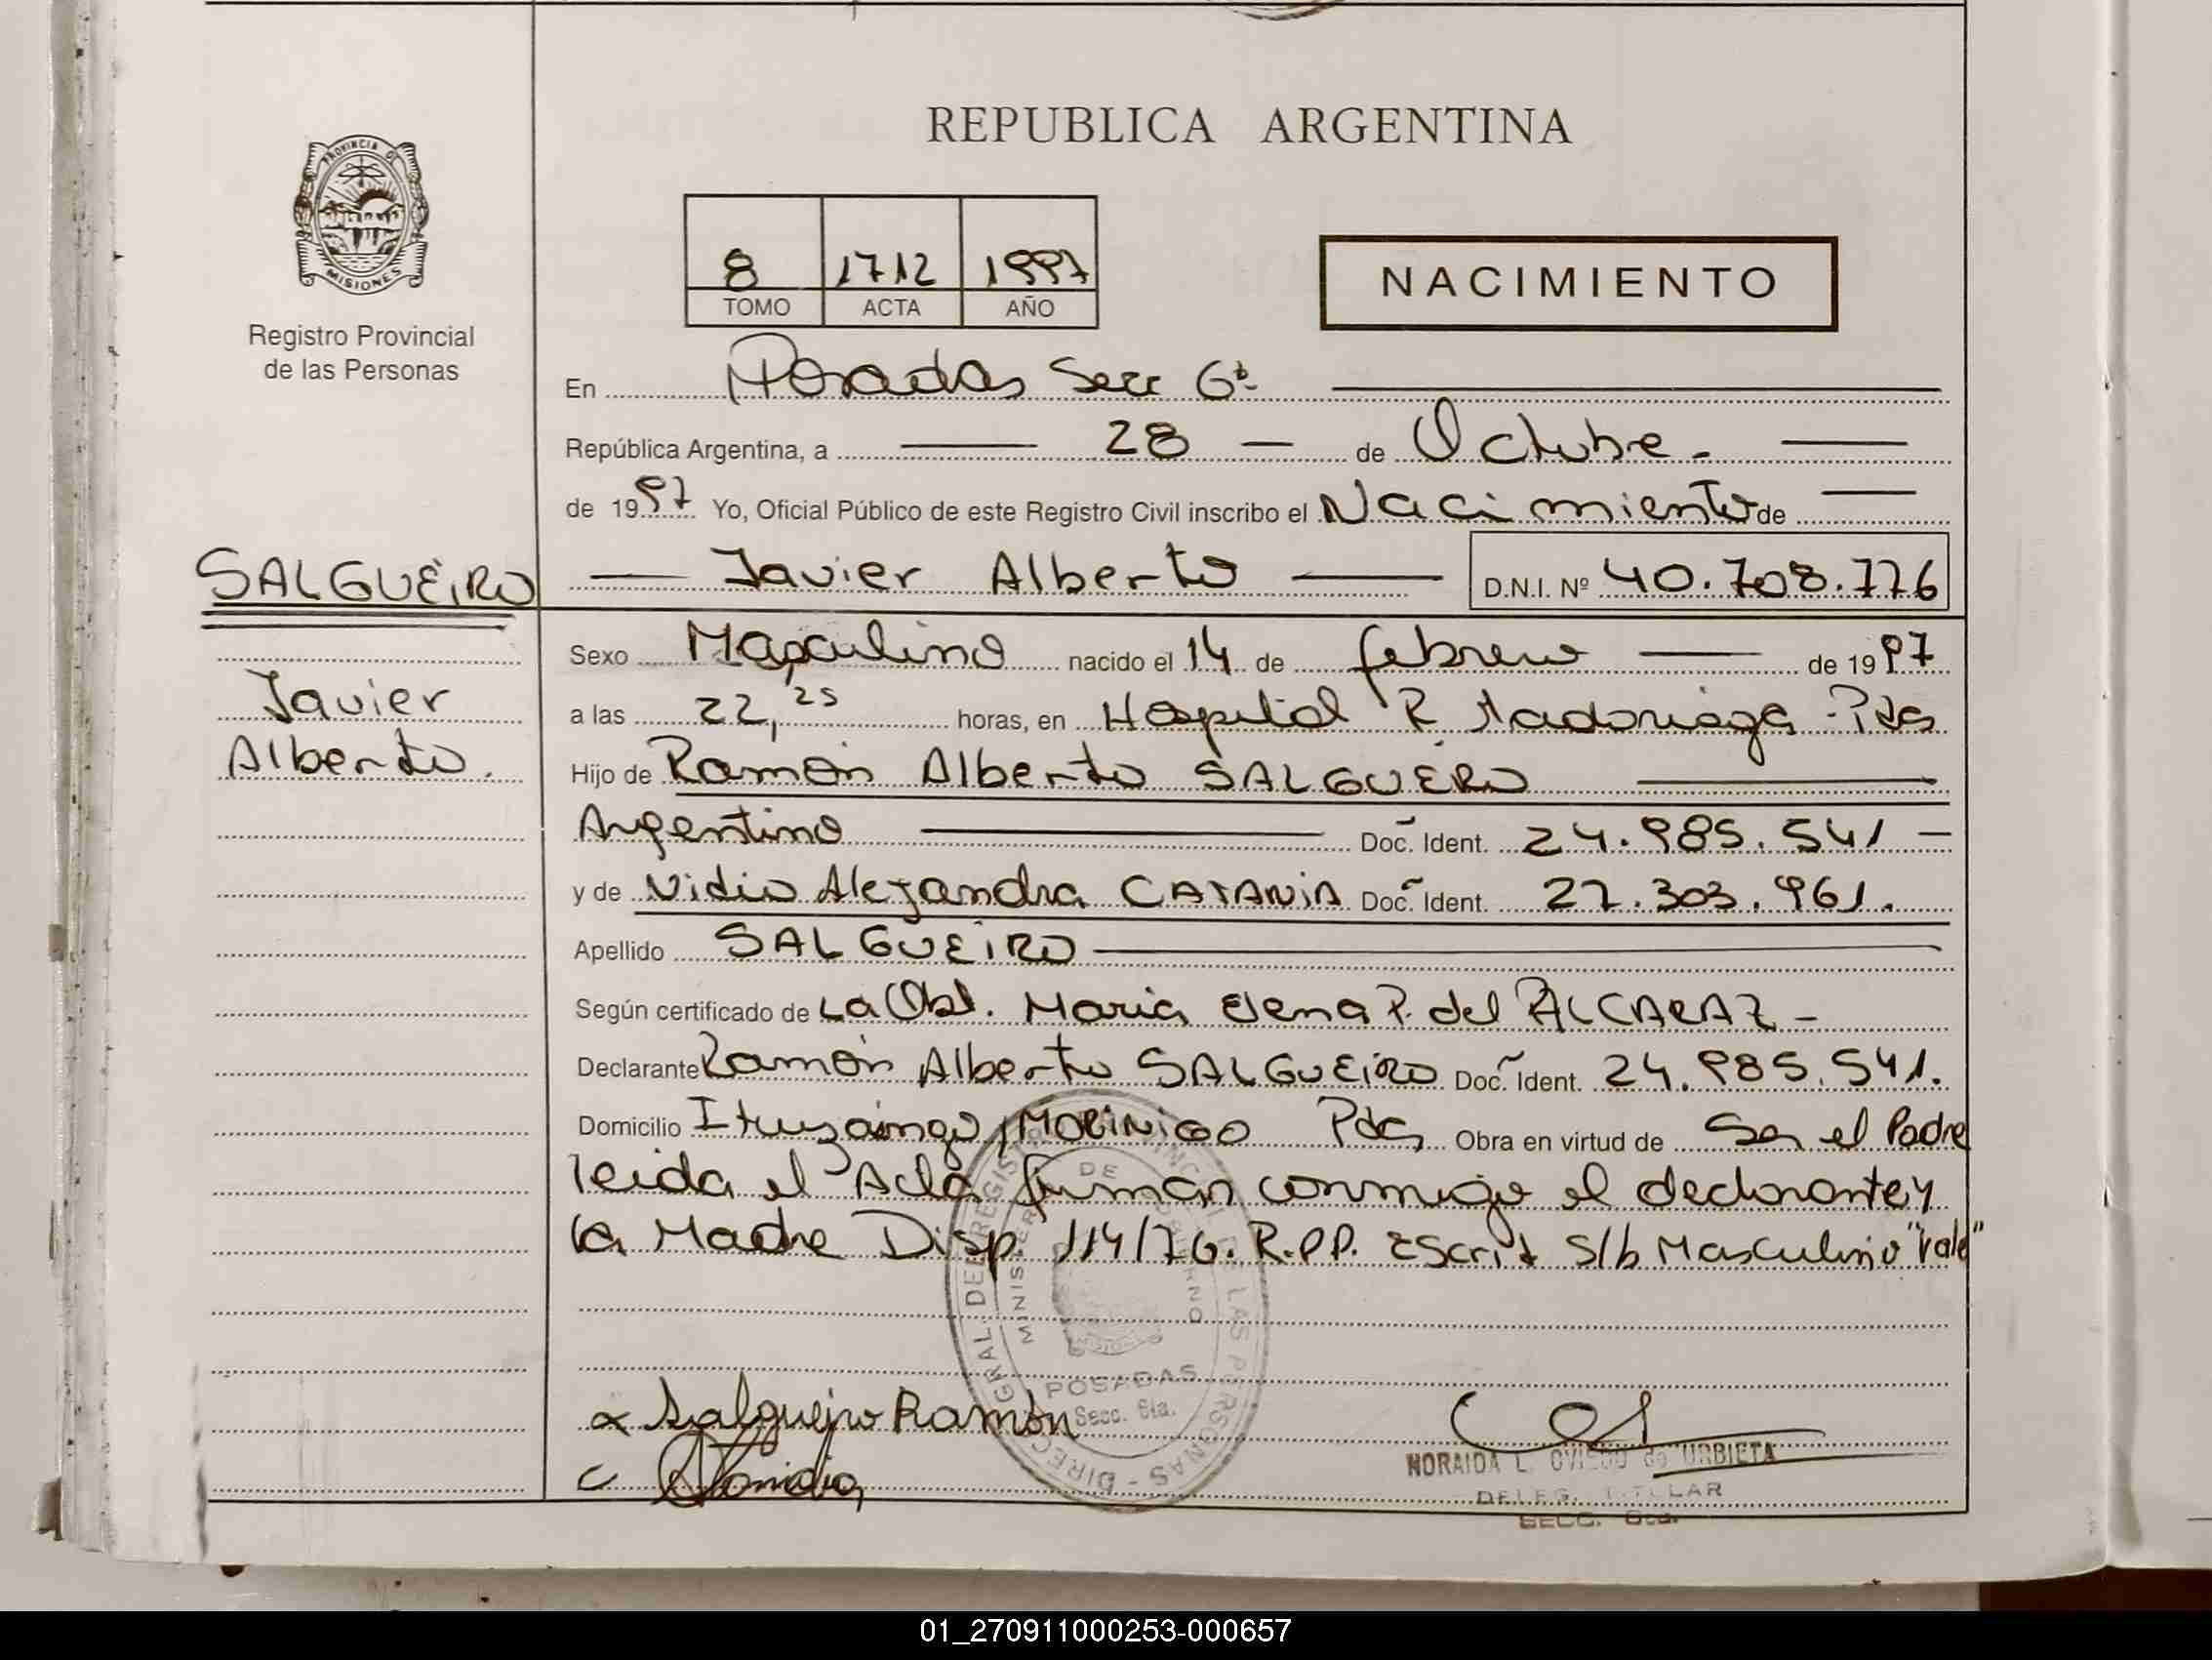 REPUBLICA ARGENTINA
PROVINCIA DE
MISIONES
Registro Provincial
de las Personas
8 1712 1997
TOMO ACTA AÑO
NACIMIENTO
En Posadas Secc 6ª
República Argentina, a 28 de Octubre.
de 1997 Yo, Oficial Público de este Registro Civil inscribo el Nacimiento de
SALGUEIRO
Javier Alberto D.N.I. Nº 40.708.776
Javier
Alberto.
Sexo Masculino nacido el 14 de febrero de 1997
a las 22,25 horas, en Hospital R Madoriaga Pdas
Hijo de Ramón Alberto SALGUEIRO
Argentino Doc. Ident. 24.985.541
y de Nidia Alejandra CATANIA Doc. Ident. 27.303.961.
Apellido SALGUEIRO
Según certificado de La Obst. Maria Elena P. del ALCARAZ
Declarante Ramón Alberto SALGUEIRO Doc. Ident. 24.985.541.
Domicilio Ituzaingo MORINIGO Pdas Obra en virtud de Ser el Padre
leida el Acta firman conmigo el declarante y
la Madre Disp. 114/76. R.P.P. Escrit S/b Masculino "Vale"
DIREC GRAL. DEL REGISTRO PROVINCIAL DE LAS PERSONAS
MINISTERIO DE GOBIERNO
POSADAS
Secc. 6ta.
Salgueiro Ramón
NORAIDA L. OVIEDO de URBIETA
DELEG. TITULAR
SECC. 6ta.
01_270911000253-000657